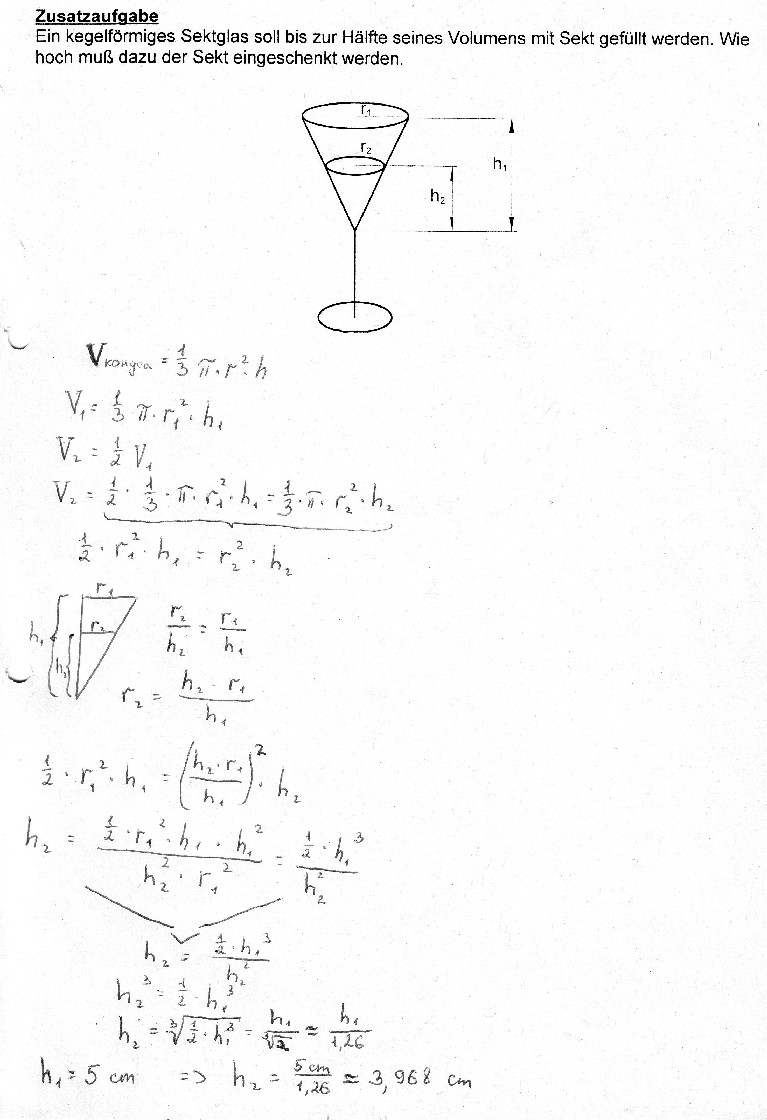 Zusatzaufgabe
Ein kegelförmiges Sektglas soll bis zur Hälfte seines Volumens mit Sekt gefüllt werden. Wie
hoch muß dazu der Sekt eingeschenkt werden.
r₁
r₂
h₁
h₂
V конуса = 1/3 π · r² · h
V₁ = 1/3 · π · r₁² · h₁
V₂ = 1/2 V₁
V₂ = 1/2 · 1/3 · π · r₁² · h₁ = 1/3 · π · r₂² · h₂
1/2 · r₁² · h₁ = r₂² · h₂
r₁
r₂
h₁
h₂
r₂/h₂ = r₁/h₁
r₂ = (h₂ · r₁)/h₁
1/2 · r₁² · h₁ = ((h₂ · r₁)/h₁)² · h₂
h₂ = (1/2 · r₁² · h₁ · h₁²)/(h₂² · r₁²) = (1/2 · h₁³)/h₂²
h₂ = (1/2 · h₁³)/h₂²
h₂³ = 1/2 · h₁³
h₂ = ∛(1/2 · h₁³) = h₁/∛2 ≈ h₁/1,26
h₁ = 5 cm => h₂ = 5 cm/1,26 ≈ 3,968 cm